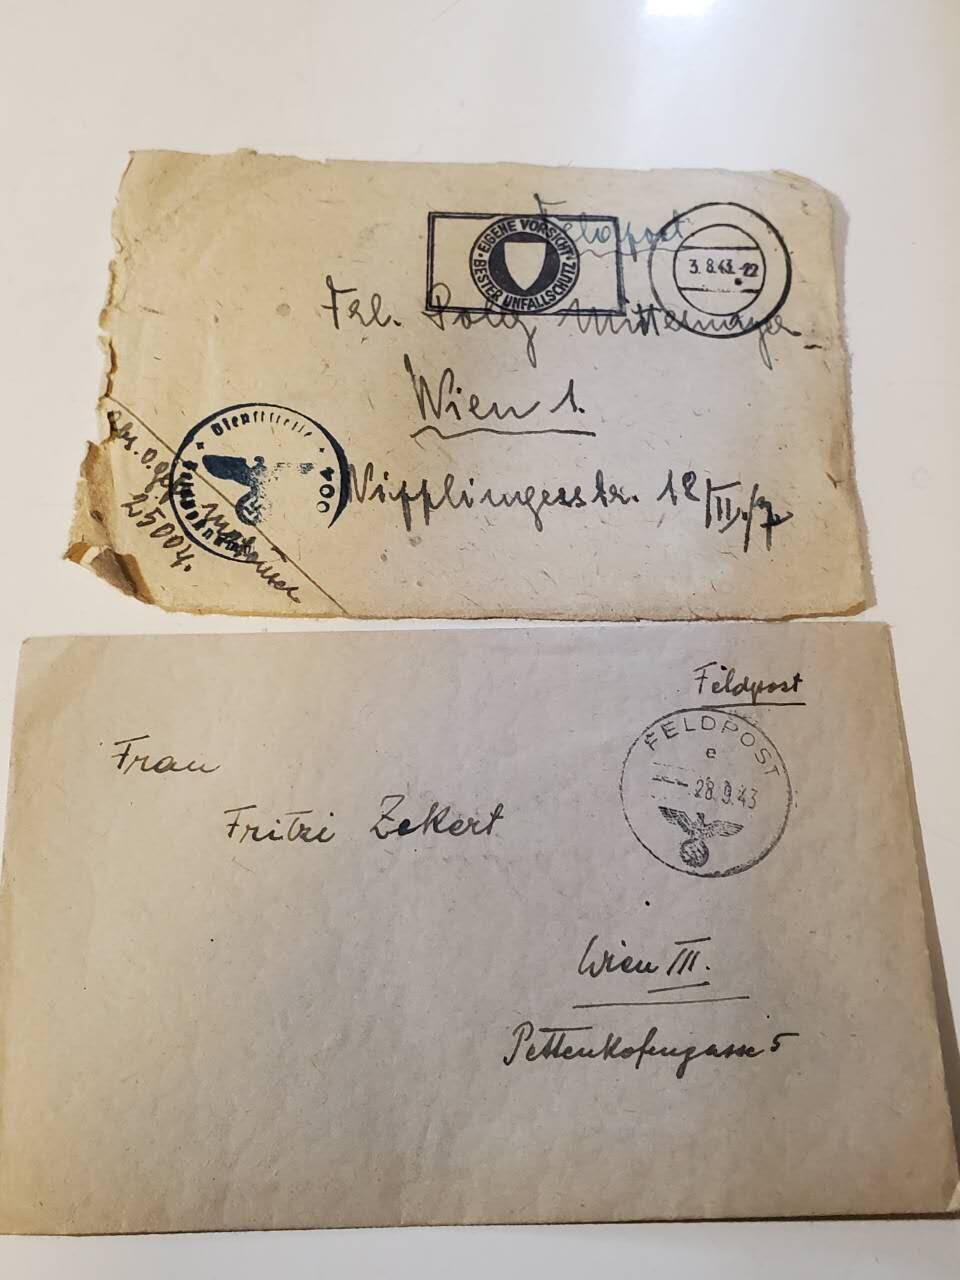 Feldpost
EIGENE VORSICHT
BESTER UNFALLSCHUTZ
3.8.43.-22
Frl. Poldy Mittermayer
Wien 1.
Wipplingerstr. 12/II./7
Dienststelle
25004.
Feldpost
FELDPOST
e
28.9.43
Frau
Fritzi Zekert
Wien III.
Pettenkofengasse 5